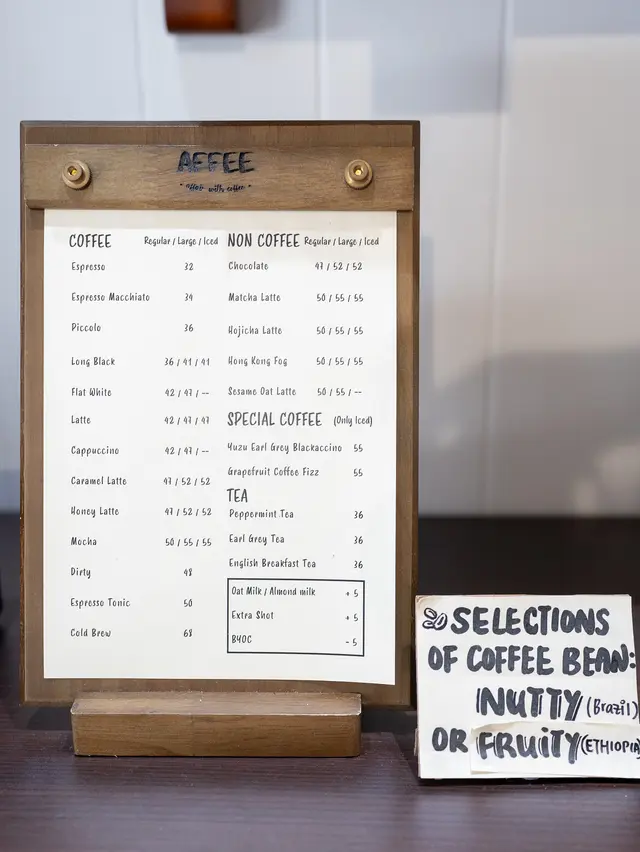 AFFEE
"affair with coffee"
COFFEE Regular / Large / Iced
Espresso 32
Espresso Macchiato 34
Piccolo 36
Long Black 36 / 41 / 41
Flat White 42 / 47 / --
Latte 42 / 47 / 47
Cappuccino 42 / 47 / --
Caramel Latte 47 / 52 / 52
Honey Latte 47 / 52 / 52
Mocha 50 / 55 / 55
Dirty 48
Espresso Tonic 50
Cold Brew 68
NON COFFEE Regular / Large / Iced
Chocolate 47 / 52 / 52
Matcha Latte 50 / 55 / 55
Hojicha Latte 50 / 55 / 55
Hong Kong Fog 50 / 55 / 55
Sesame Oat Latte 50 / 55 / --
SPECIAL COFFEE (Only Iced)
Yuzu Earl Grey Blackaccino 55
Grapefruit Coffee Fizz 55
TEA
Peppermint Tea 36
Earl Grey Tea 36
English Breakfast Tea 36
Oat Milk / Almond milk + 5
Extra Shot + 5
BYOC - 5
SELECTIONS
OF COFFEE BEAN:
NUTTY (Brazil)
OR FRUITY (ETHIOPIA)